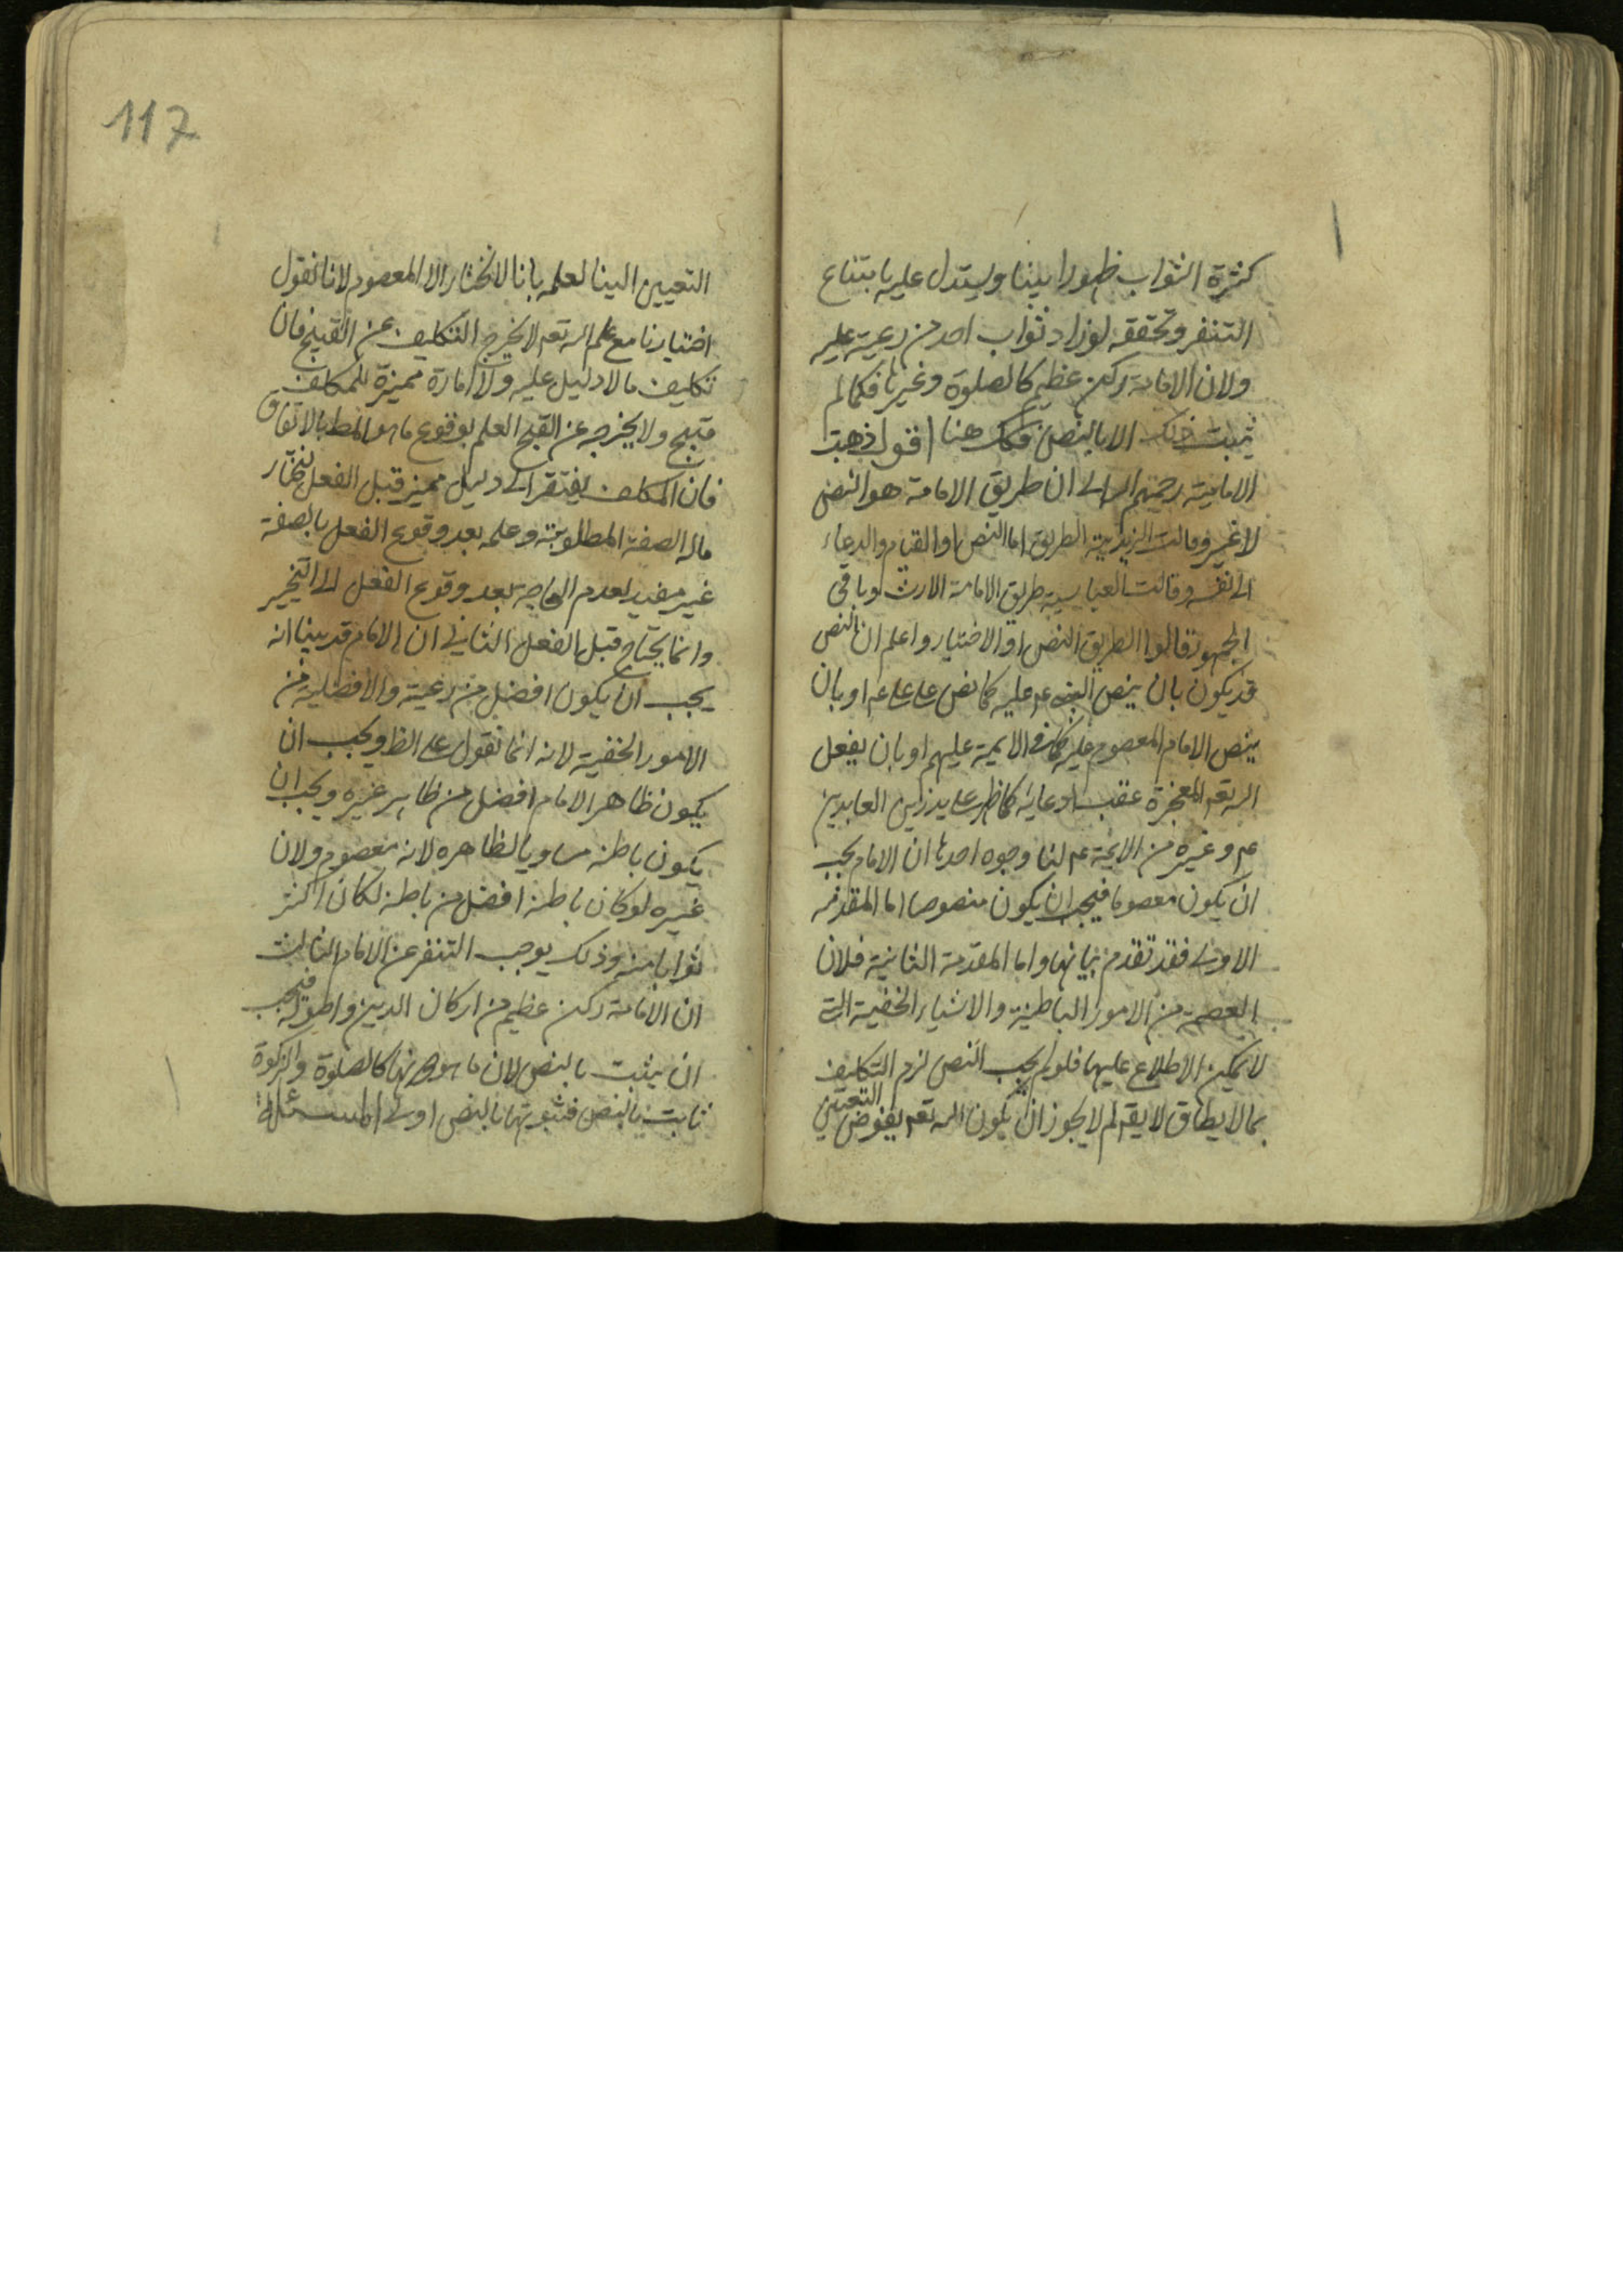 كثرة الثواب ظهورا بينا ويستدل عليه بامتناع
التنفر وتحققه لو زاد ثواب احد من رعيته عليه
ولان الامامة ركن عظيم كالصلوة وغيرها فكما لم
يثبت ذلك الا بالنص فكك هنا اقول ذهبت
الامامية رحمهم الله الى ان طريق الامامة هو النص
لا غير وقالت الزيدية الطريق اما النص او القيام والدعاء
الى نفسه وقالت العباسية طريق الامامة الارث وباقى
الجمهور قالوا الطريق النص او الاختيار واعلم ان النص
قد يكون بان ينص النبى عم عليه كما نص على على عم او بان
ينص الامام المعصوم عليه كما فى الايمة عليهم او بان يفعل
الله تعم المعجزة عقيب ادعائه كما ظهر على يد زين العابدين
عم وغيره من الائمة عم لنا وجوه احدها ان الامام يجب
ان يكون معصوما فيجب ان يكون منصوصا اما المقدمة
الاولى فقد تقدم بيانها واما المقدمة الثانية فلان
العصمة من الامور الباطنية والاشياء الخفية التى
لا يمكن الاطلاع عليها فلو لم يجب النص لزم التكليف
بما لا يطاق لا يقم لم لا يجوز ان يكون الله تعم يفوض التعيين
117
التعيين الينا لعلمه بانا لا نختار الا المعصوم لانا نقول
اختيارنا مع علم الله تعم لا يخرج التكليف عن القبيح فان
تكليف ما لا دليل عليه ولا امارة مميزة للمكلف
قبيح ولا يخرجه عن القبح العلم بوقوع ما هو المط بالاتفاق
فان المكلف يفتقر الى دليل مميز قبل الفعل ليختار
ماله الصفة المطلوبة وعلمه بعد وقوع الفعل بالصفة
غير مفيد لعدم الحاجة بعد وقوع الفعل الى التخيير
وانما يحتاج قبل الفعل الثانى ان الامام قد بينا انه
يجب ان يكون افضل من رعيته والافضلية من
الامور الخفية لانه انما نقول على الظ ويجب ان
يكون ظاهر الامام افضل من ظاهر غيره ويجب ان
يكون باطنه مساويا لظاهره لانه معصوم ولان
غيره لو كان باطنه افضل من باطنه لكان اكثر
ثوابا منه وذلك يوجب التنفر عن الامام الثالث
ان الامامة ركن عظيم من اركان الدين واصوله فيجب
ان يثبت بالنص لان ما هو دونها كالصلوة والزكوة
ثابت بالنص فثبوتها بالنص اولى المسئلة